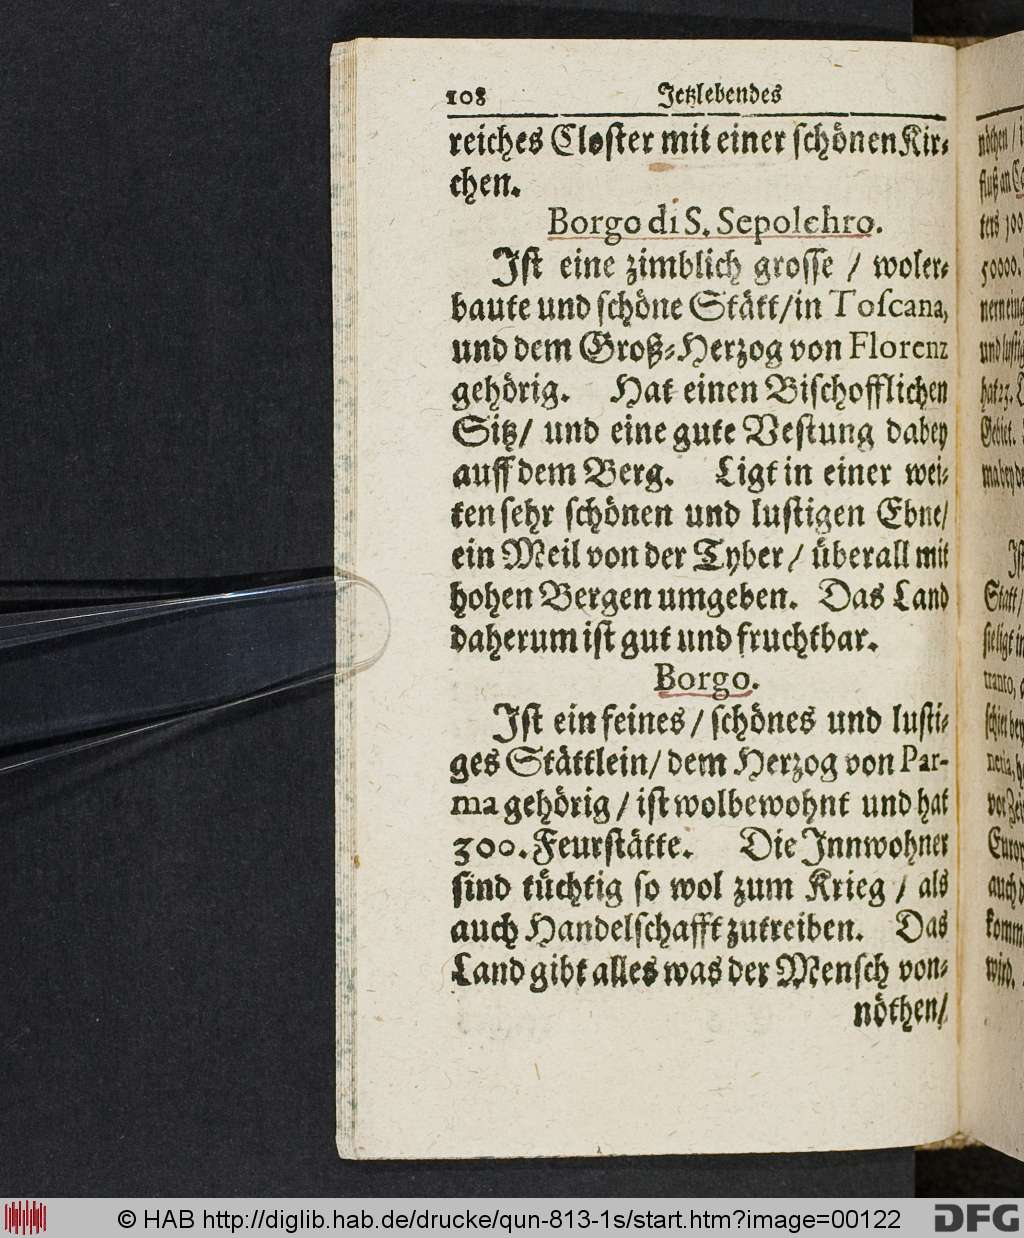 108 Jetzlebendes
reiches Closter mit einer schönen Kir-
chen.
Borgo di S. Sepolchro.
Jst eine zimblich grosse / woler-
baute und schöne Stätt/in Toscana,
und dem Groß-Herzog von Florenz
gehörig. Hat einen Bischofflichen
Sitz/ und eine gute Vestung dabey
auff dem Berg. Ligt in einer wei-
ten sehr schönen und lustigen Ebne/
ein Meil von der Tyber / überall mit
hohen Bergen umgeben. Das Land
daherum ist gut und fruchtbar.
Borgo.
Jst ein feines / schönes und lusti-
ges Stättlein/ dem Herzog von Par-
ma gehörig / ist wolbewohnt und hat
300. Feurstätte. Die Jnnwohner
sind tüchtig so wol zum Krieg / als
auch Handelschafft zutreiben. Das
Land gibt alles was der Mensch von-
nöthen/
nöthen /
fluß an
ters 300
50000.
und lustig
hat 23.
Gebiet.
Jst
Statt/
sie ligt in
tranto,
schier bey
vor Zei
Europ
auch d
komm
wird.
© HAB http://diglib.hab.de/drucke/qun-813-1s/start.htm?image=00122
DFG